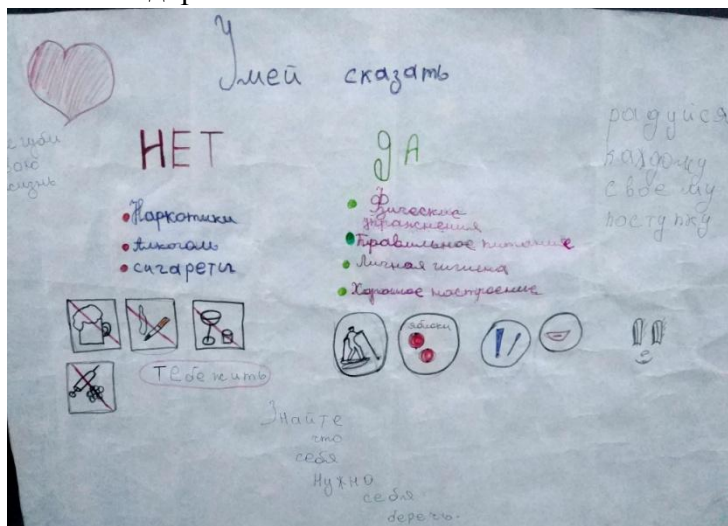 Умей сказать
НЕТ
ДА
радуйся
каждому
своему
поступку
жизнь
Наркотики
Алкоголь
сигареты
Физические
упражнения
Правильное питание
Личная гигиена
Хорошое настроение
яблоки
Тебе жить
Знайте
что
себя
Нужно
себя
беречь.